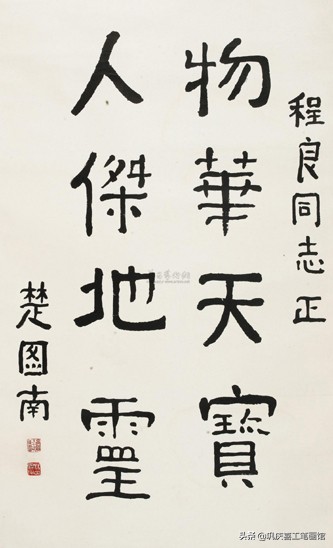 程良同志正
物華天寶
人傑地靈
楚圖南
头条@巩庆喜工笔画馆